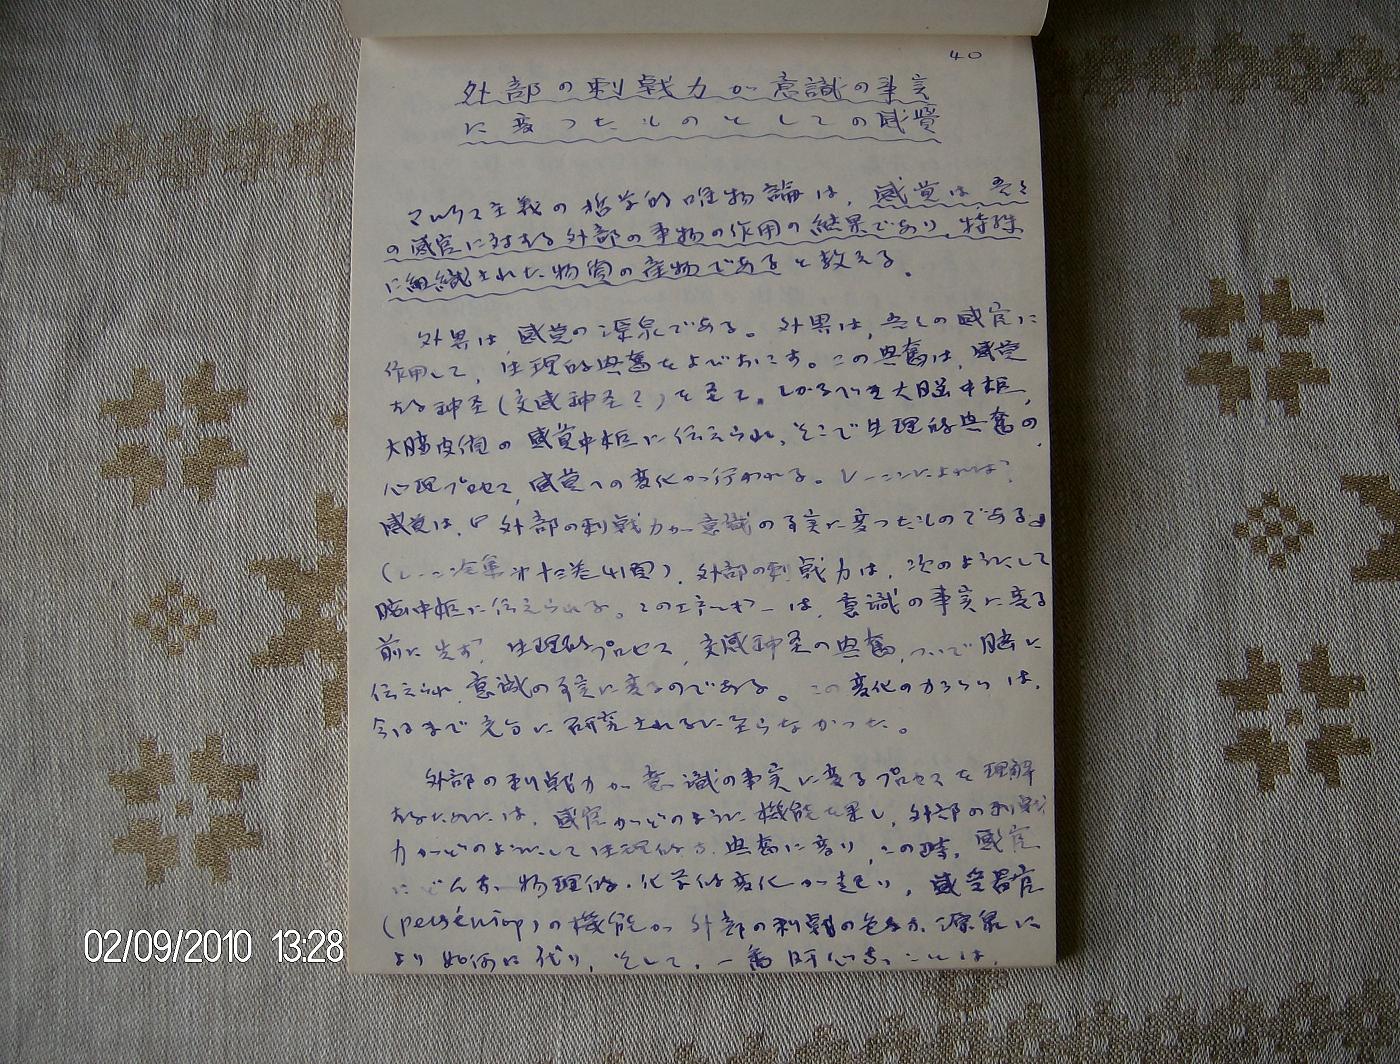 40
外部の刺戟力が意識の事実
に変つたものとしての感覚
マルクス主義の哲学的唯物論は、感覚は、吾々
の感官に対する外部の事物の作用の結果であり、特殊
に組織された物質の産物であると教える。
外界は、感覚の源泉である。外界は、吾々の感官に
作用して、生理的興奮をよびおこす。この興奮は、感覚
する神圣(交感神圣?)を圣て、しかるべき大脳中枢、
大脳皮質の感覚中枢に伝えられ、そこで生理的興奮の、
心理プロセス、感覚への変化が行われる。レーニンによれば、
感覚は、『外部の刺戟力が意識の事実に変つたものである』
(レーニン全集 第十三巻 41頁)、外部の刺戟力は、次のようにして
脳中枢に伝えられる。このエネルギーは、意識の事実に変る
前に先ず、生理的プロセス、交感神圣の興奮、ついで脳に
伝えられ、意識の事実に変るのである。この変化のカラクリは、
今日まで充分に研究されるに至らなかった。
外部の刺戟力が意識の事実に変るプロセスを理解
するためには、感官がどのように機能を果し、外部の刺戟
力がどのようにして生理的な興奮に変り、この時、感官
にどんな物理的・化学的変化が起り、感受器官
の機能が外部の刺戟の色々な源泉に
より如何に 、そして、一番肝心なことは、